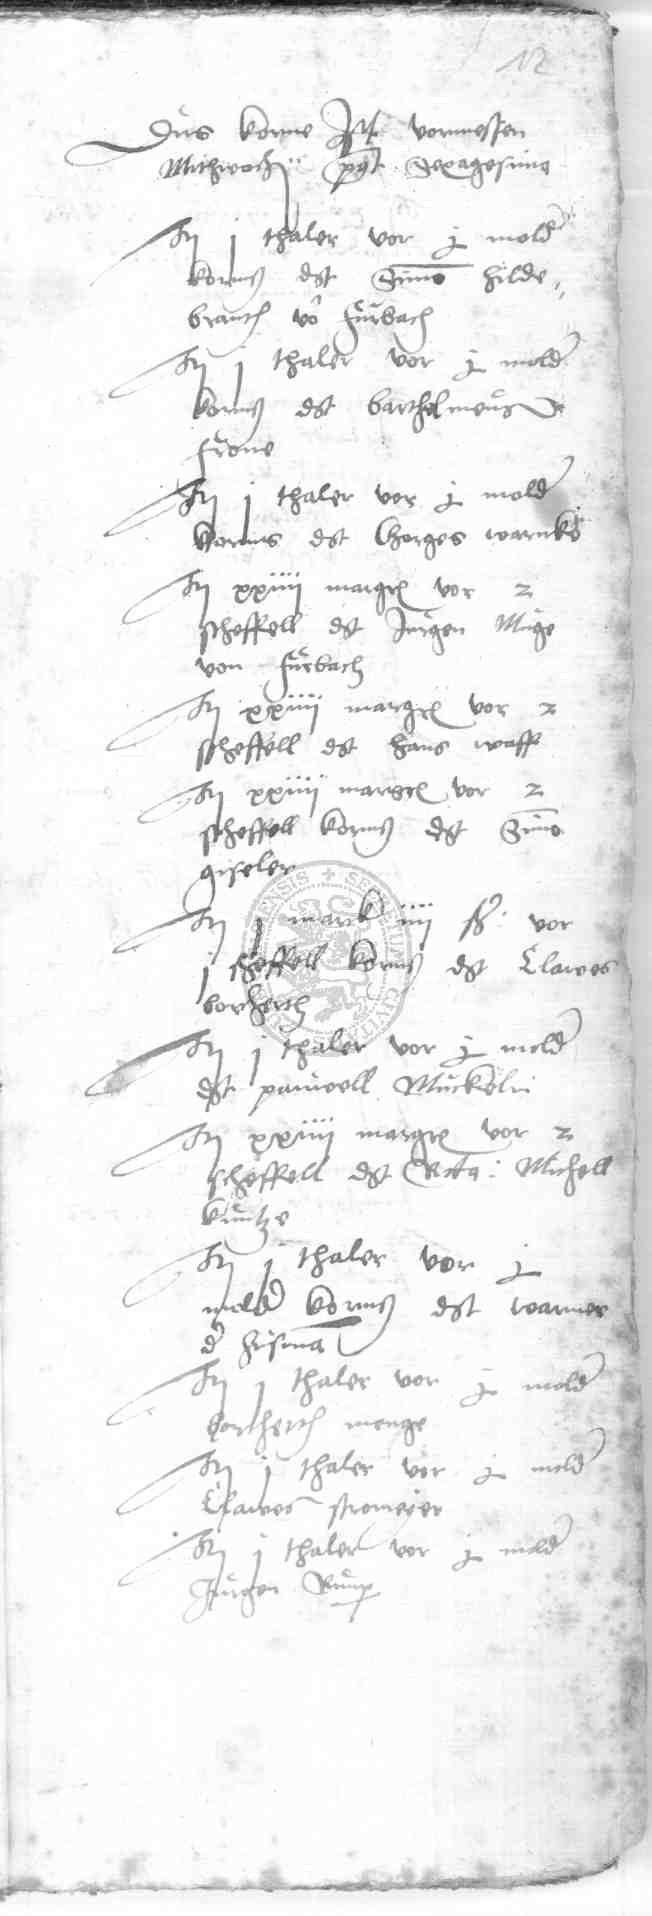 12
Dus korne Ist vormessen
Mithwochs post Sexagesima
Itj j thaler vor j mold
korns dt Simo hilde-
branth vo furbach
Itj j thaler vor j mold
korns dt barthelmeus
frone
Itj j thaler vor j mold
korns dt Chorges warnko
Itj xxiiii margr vor 2
scheffell dt Jurgen Muge
von furbach
Itj xxiiii margr vor 2
scheffell dt hans waff
Itj xxiiii margr vor 2
scheffell korns dt Simo
giseler
Itj j mark iiii ß vor
j scheffell korns dt Clawes
borcherth
Itj j thaler vor j mold
dt pauwell
Itj xxiiii margr vor 2
scheffell dt Michell
kuntze
Itj j thaler vor j
mold korns dt warner
Itj j thaler vor j mold
borcherth menge
Itj j thaler vor j mold
Clawes stromeyer
Itj j thaler vor j mold
Jurgen Rump